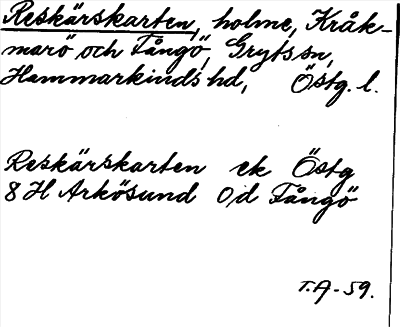 Reskärskarten, holme, Kråk-
marö och Fångö, Gryts sn,
Hammarkinds hd, Östg. l.
Reskärskarten ek Östg
8 H Arkösund 0d Fångö
T.A-59.